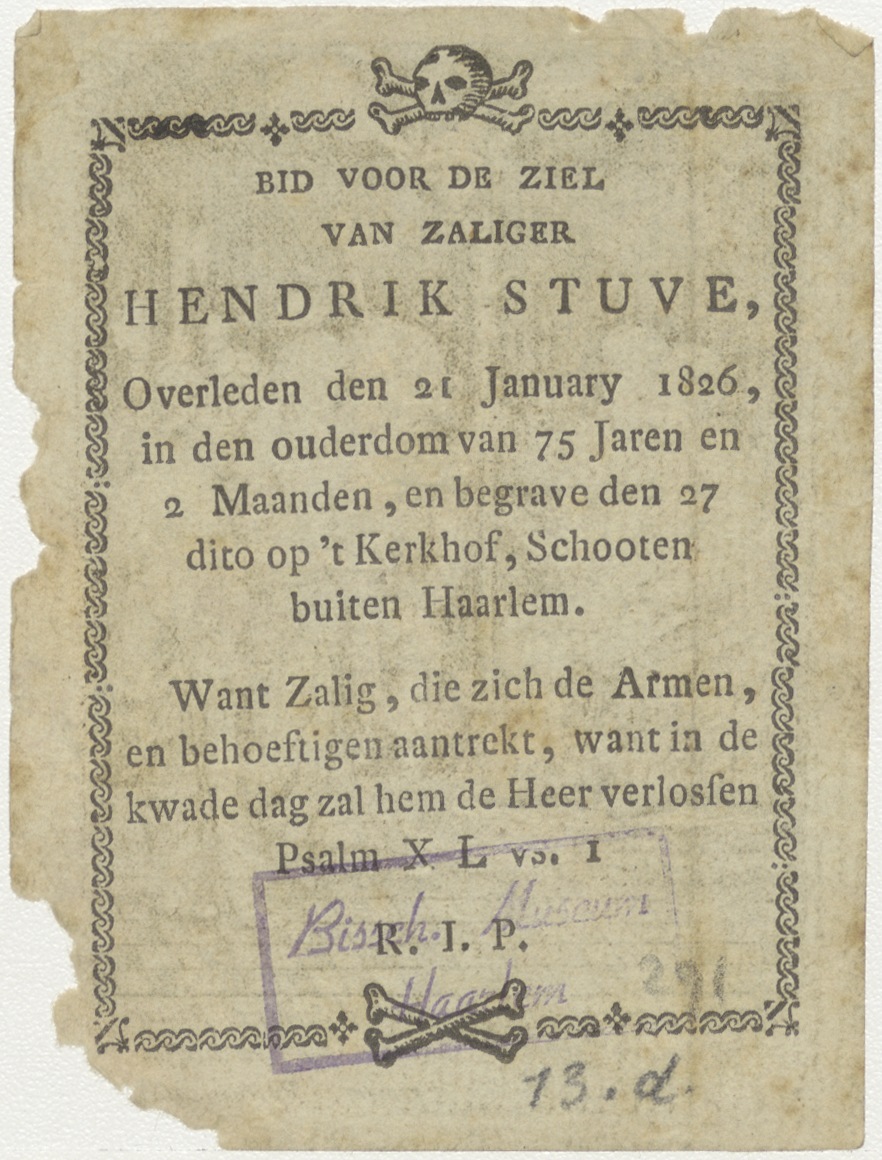 BID VOOR DE ZIEL
VAN ZALIGER
HENDRIK STUVE,
Overleden den 21 January 1826,
in den ouderdom van 75 Jaren en
2 Maanden, en begrave den 27
dito op 't Kerkhof, Schooten
buiten Haarlem.
Want Zalig, die zich de Armen,
en behoeftigen aantrekt, want in de
kwade dag zal hem de Heer verlosſen
Psalm X L vs. 1
Bissch. Museum
R. I. P.
Haarlem
291
13.d.